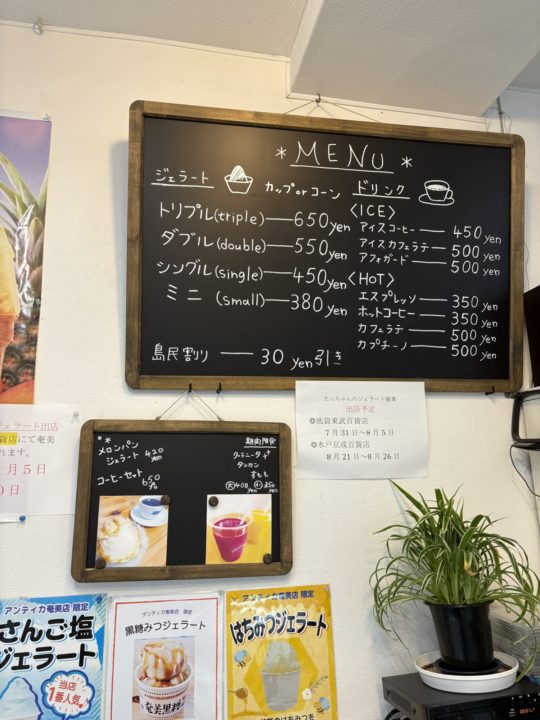 * MENU *
ジェラート
カップ or コーン
トリプル(triple)——650yen
ダブル(double)——550yen
シングル(single)——450yen
ミニ (small)——380yen
島民割り —— 30 yen引き
ドリンク
〈ICE〉
アイスコーヒー —— 450yen
アイスカフェラテ —— 500yen
アフォガード —— 500yen
〈HOT〉
エスプレッソ —— 350yen
ホットコーヒー —— 350yen
カフェラテ —— 500yen
カプチーノ —— 500yen
メロンパン
ジェラート 420yen
コーヒーセット 650yen
期間限定
グラニータ
タンカン
すもも
大400yen 小350yen
たっちゃんのジェラート催事
出店予定
◎池袋東武百貨店
7月31日～8月5日
◎水戸京成百貨店
8月21日～8月26日
ジェラート出店
貨店にて奄美
れます。
月5日
0日
アンティカ奄美店 限定
さんご塩
ジェラート
当店
1番人気
アンティカ奄美店 限定
黒糖みつジェラート
奄美黒糖
アンティカ奄美店 限定
はちみつジェラート
のはちみつを